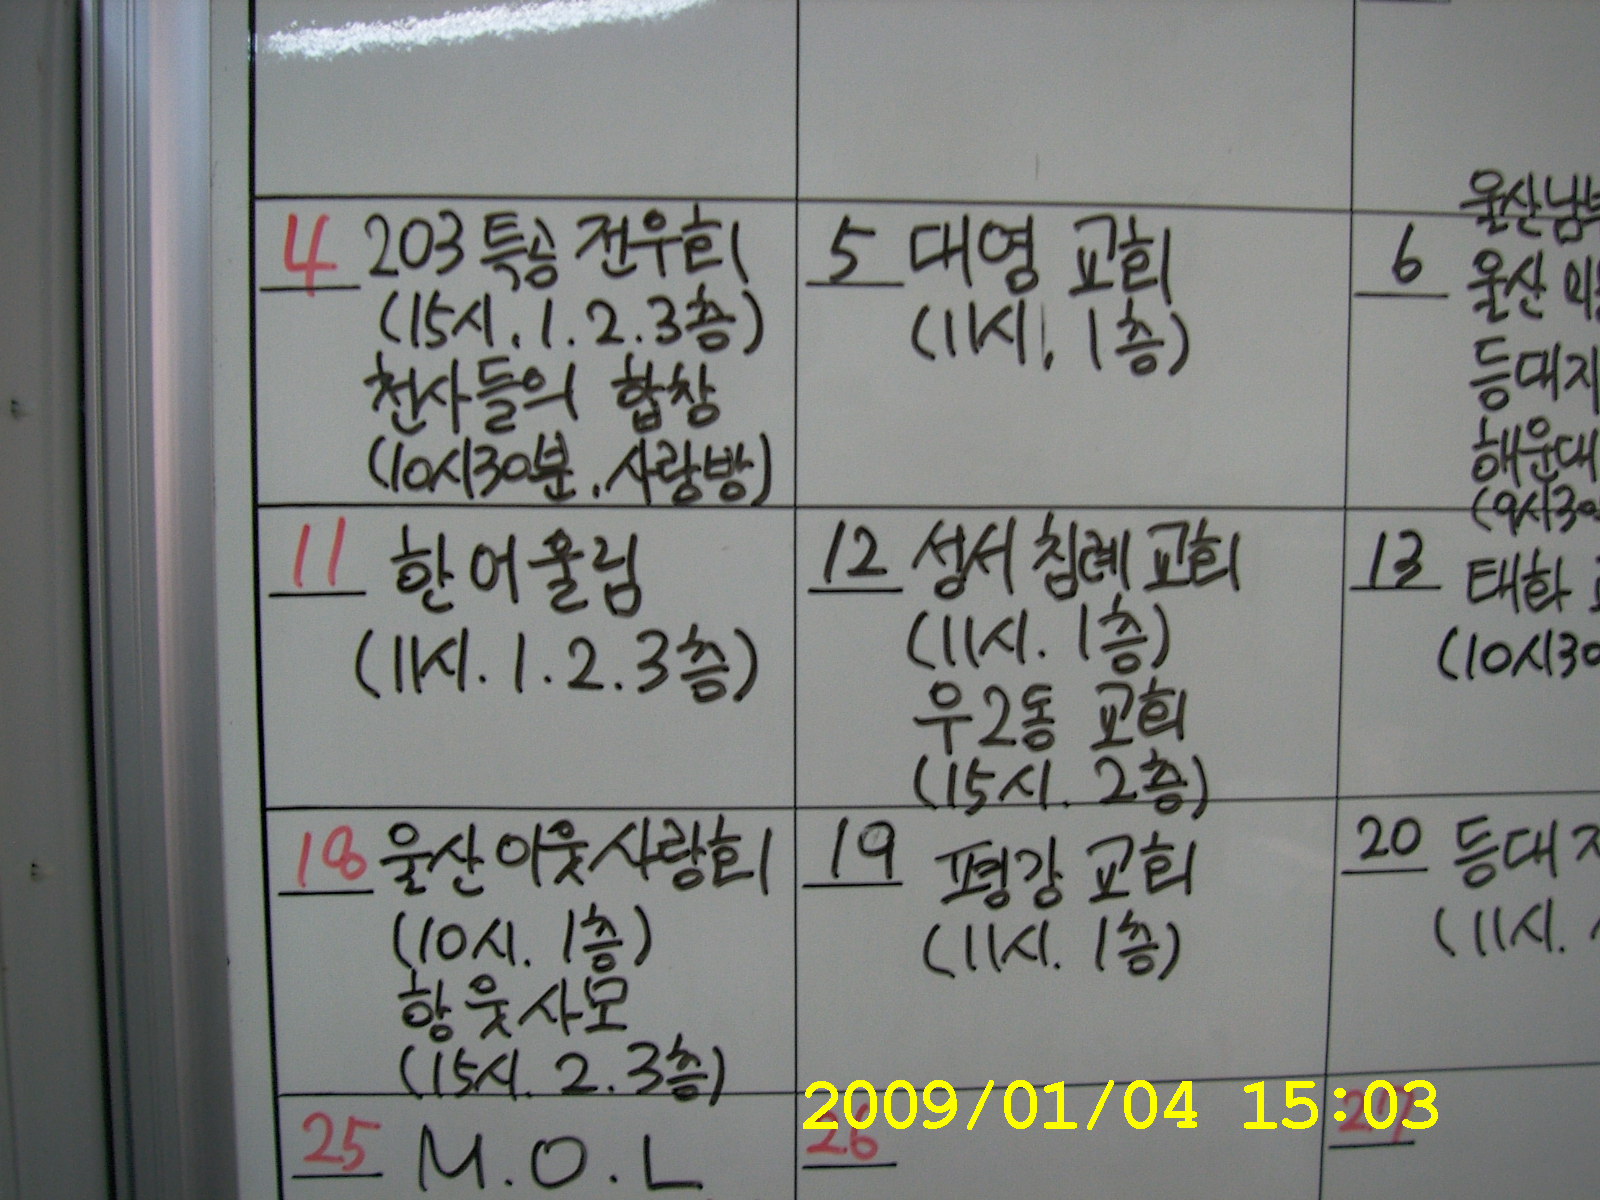 4 203 특공 전우회
(15시. 1. 2. 3층)
천사들의 합창
(10시30분. 사랑방)
5 대영 교회
(11시. 1층)
6 울산남
울산
등대
해운대
(9시30
11 한어울림
(11시. 1. 2. 3층)
12 성서 침례 교회
(11시. 1층)
우2동 교회
(15시. 2층)
13 태화
(10시30
18 울산이웃사랑회
(10시. 1층)
항웃사모
(15시. 2. 3층)
19 평강 교회
(11시. 1층)
20 등대
(11시.
25 M.O.L
26
27
2009/01/04 15:03